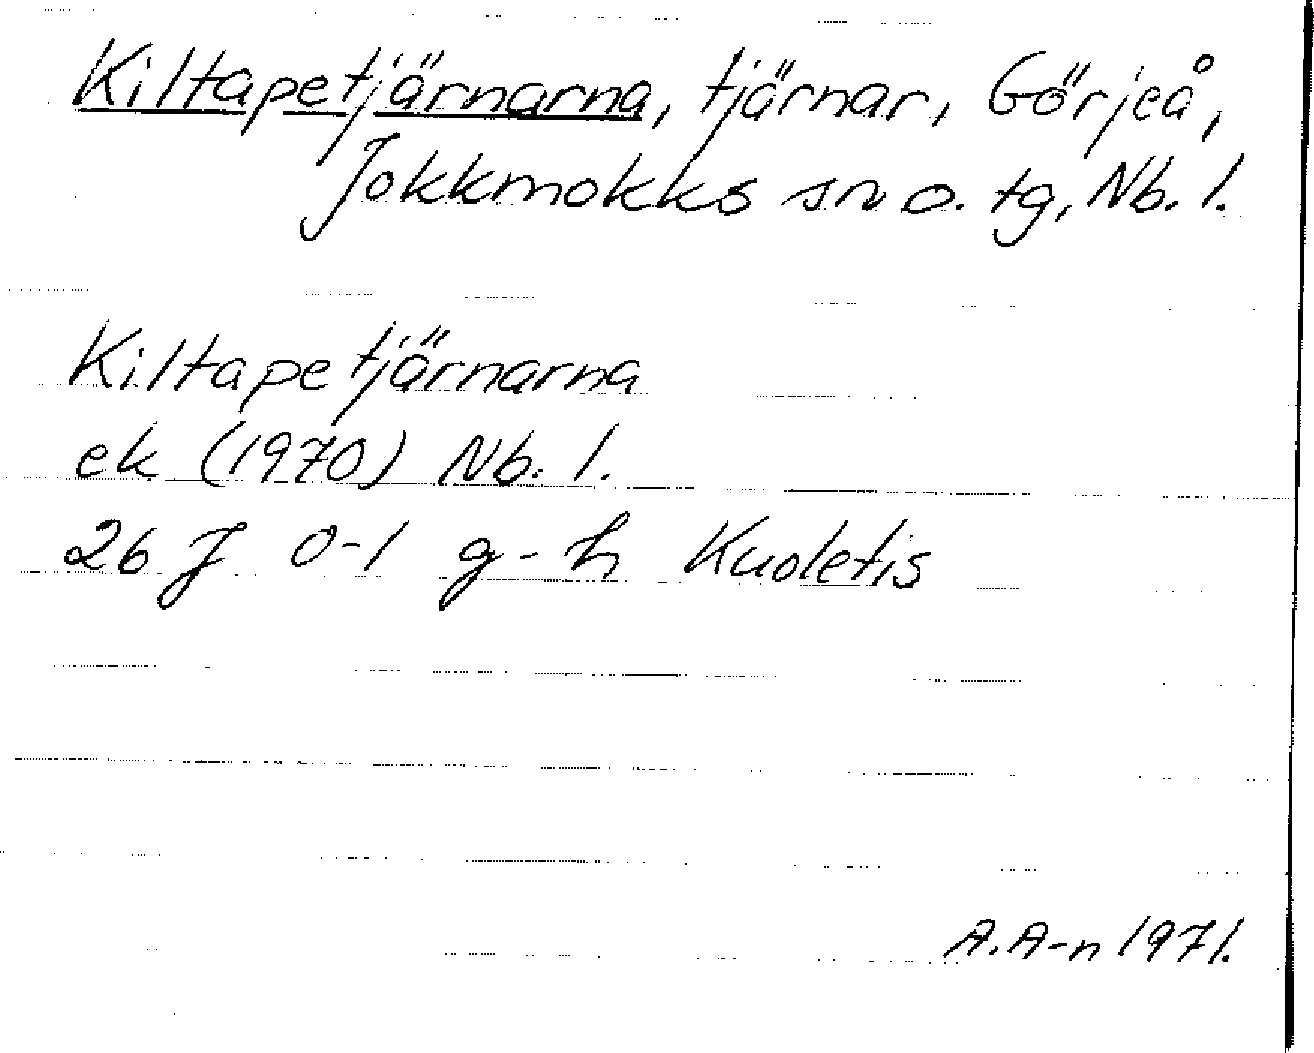 Kiltapetjärnarna, tjärnar, Görjeå,
Jokkmokks sn o. tg, Nb. l.
Kiltapetjärnarna
ek (1970) Nb. l.
26 J 0-1 g-h Kuoletis
A.A-n 1971.